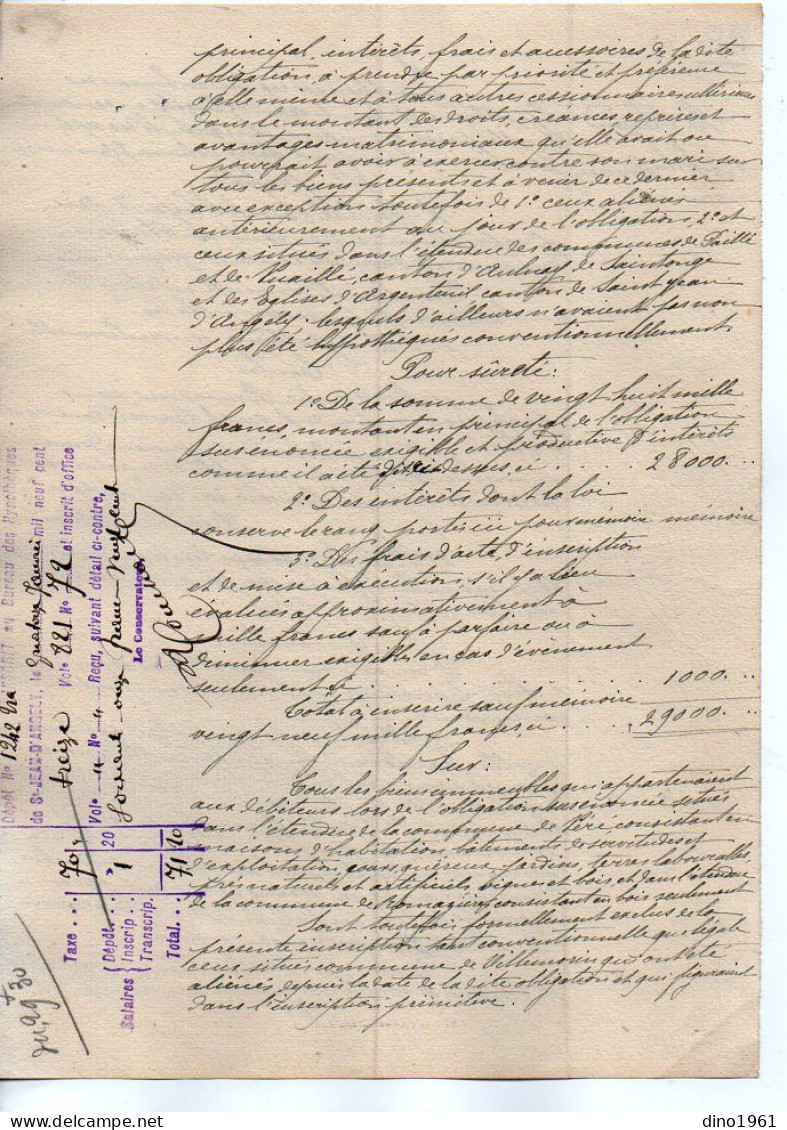 principal, intérêts, frais et accessoires de la dite
obligation, à prendre par priorité et préférence
à elle même et à tous autres cessionnaires ultérieurs
dans le montant des droits, créances reprises et
avantages matrimoniaux qu'elle avait ou
pourrait avoir à exercer contre son mari sur
tous les biens présents et à venir de ce dernier
avec exception toutefois de 1º ceux aliénés
antérieurement au jour de l'obligation, 2º et
ceux situés dans l'étendue des communes de Paillé
et de Vinaillé, cantons d'Aulnay de Saintonge
et des Eglises d'Argenteuil canton de Saint Jean
d'Angély, lesquels d'ailleurs n'avaient pas non
plus été hypothéqués conventionnellement
Pour sûreté:
1º De la somme de vingt huit mille
francs, montant en principal de l'obligation
susénoncée exigible et productive d'intérêts
comme il a été dit ci dessus, ci . . . . . 28000. ..
2º Des intérêts dont la loi
conserve le rang portés ici pour mémoire mémoire
3º Des frais d'acte d'inscription
et de mise à exécution, s'il y a lieu
évalués approximativement à
mille francs sauf à parfaire ou à
diminuer exigibles en cas d'évènement
seulement ci . . . . . 1000. ..
Total à inscrire sauf mémoire
vingt neuf mille francs ci . . . 29000. ..
Sur:
Tous les biens immeubles qui appartenaient
aux débiteurs lors de l'obligation susénoncée situés
dans l'étendue de la commune de Péré, consistant en
maisons d'habitation, bâtiments, de servitudes et
d'exploitation, cours, quéreux, jardins, terres labourables,
prés naturels et artificiels, vignes et bois, et dans l'étendue
de la commune de Romazières consistant en bois seulement
Sont toutefois formellement exclus de la
présente inscription tant conventionnelle que légale
ceux situés commune de Villemorin qui ont été
aliénés, depuis la date de la dite obligation et qui figuraient
dans l'inscription primitive.
Dépôt Nº 1242 au Bureau des Hypothèques
de St-JEAN-D'ANGELY, le quatorze Janvier mil neuf cent
treize Volº 821 Nº 72 et inscrit d'office
Volº 4 Nº 4 Reçu, suivant détail ci-contre,
Soixante onze francs
Le Conservateur,
Taxe . . . 70 "
Salaires Dépôt. . . "
Inscrip . . 1 20
Transcrip.
Total. . . 71 20
dino1961